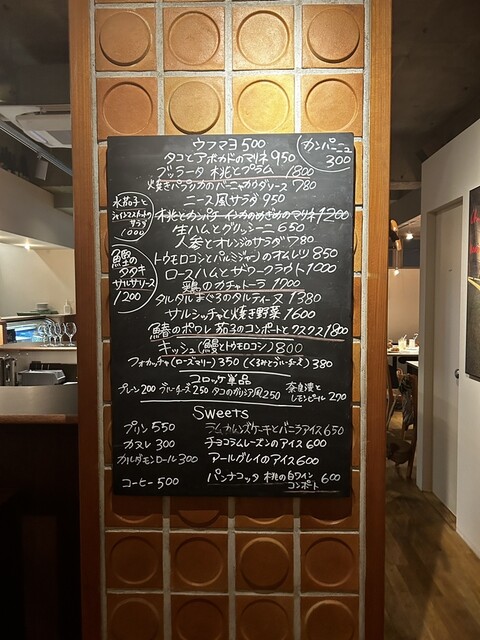 ウフマヨ 500
カンパーニュ
300
タコとアボカドのマリネ 950
ブッラータ 桃とプラム 1800
焼きパプリカのバーニャカウダソース 780
ニース風サラダ 950
水茄子と
シャインマスカットの
サラダ
1000
桃とカンパチ インカのめざめのマリネ 1200
生ハムとグリッシーニ 650
人参とオレンジのサラダ 780
鰹の
タタキ
サルサソース
1200
トウモロコシとパルミジャーノのオムレツ 850
ロースハムとザワークラウト 1000
鶏のカチャトーラ 1700
タルタルまぐろのタルティーヌ 1380
サルシッチャと焼き野菜 1600
鰆のポワレ 茄子のコンポートとクスクス 1800
キッシュ(鰻とトウモロコシ) 800
フォカッチャ(ローズマリー) 350 (くるみとブルーチーズ) 380
コロッケ単品
プレーン 200 ブルーチーズ 250 タコのガリシア風 250
奈良漬と
レモンピール 290
Sweets
プリン 550
ラムカムンズケーキとバニラアイス 650
カヌレ 300
チョコラムレーズンのアイス 600
カルダモンロール 300
アールグレイのアイス 600
コーヒー 500
パンナコッタ 桃の白ワイン
コンポート 600